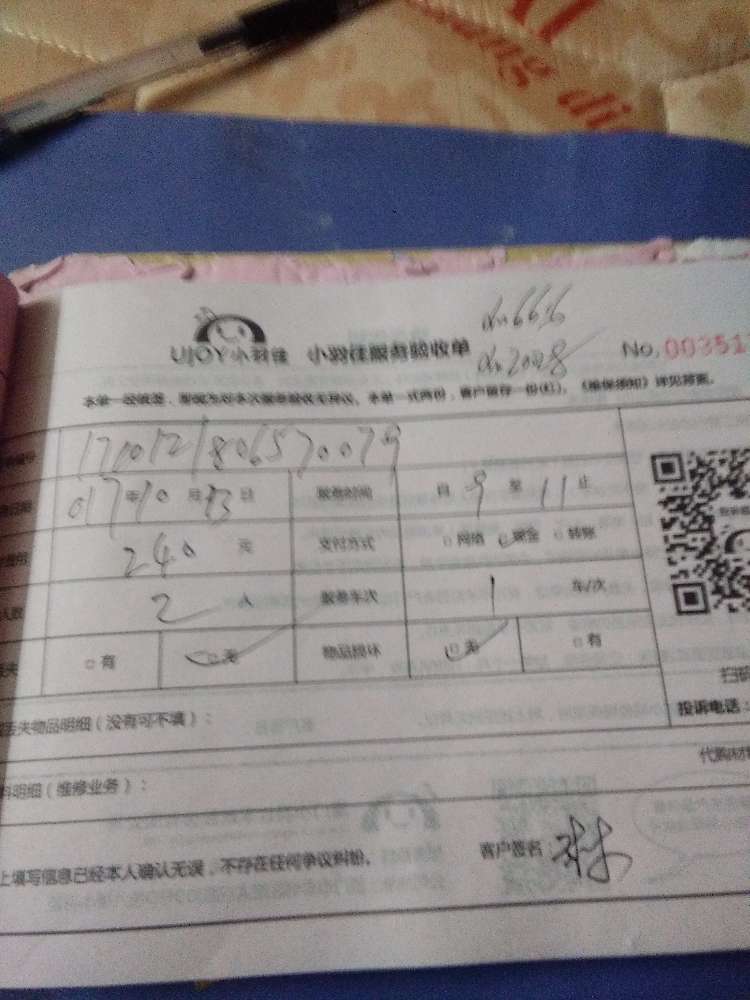 UJOY小羽佳 小羽佳服务验收单 No.00351
本单一经签签，即视为对本次服务验收无异议。本单一式两份，客户留存一份(红)。《维保须知》详见背面。
1710121806570079
017年10月13日 服务时间 自9至11止
240元 支付方式 网络 现金 转账
2人 服务车次 1 车/次
有 无 物品损坏 无 有
丢失物品明细（没有可不填）：
投诉电话：
代购材
料明细（维修业务）：
上填写信息已经本人确认无误，不存在任何争议纠纷。 客户签名：林